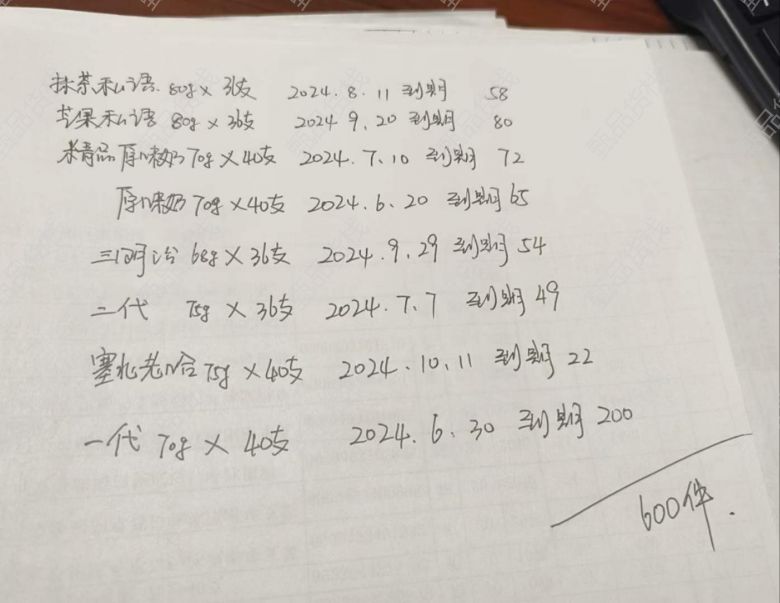 抹茶私语 80g × 36支 2024.8.11 到期 58
苹果私语 80g × 36支 2024 9.20 到期 80
米精品 厚味奶 70g × 40支 2024.7.10 到期 72
厚味奶 70g × 40支 2024.6.20 到期 65
三明治 68g × 36支 2024.9.29 到期 54
二代 75g × 36支 2024.7.7 到期 49
塞北老哈 75g × 40支 2024.10.11 到期 22
一代 70g × 40支 2024.6.30 到期 200
600件.